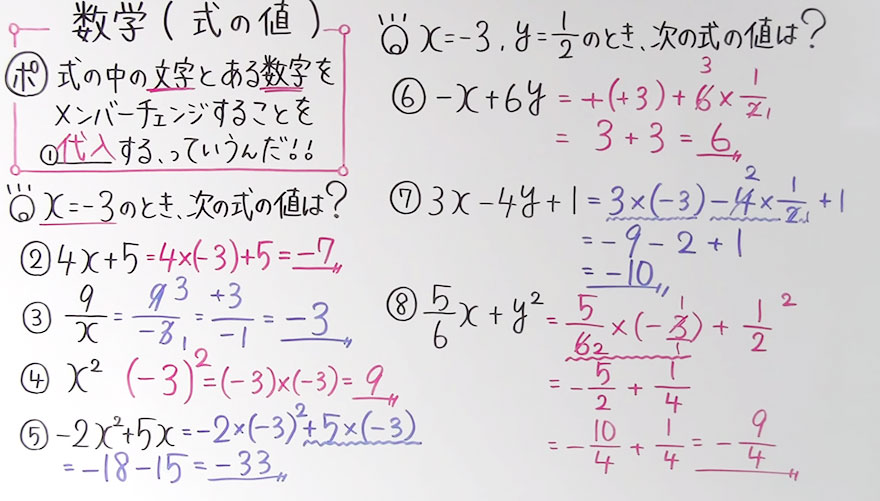 数学(式の値)
ポ 式の中の文字とある数字を
メンバーチェンジすることを
①代入する、っていうんだ!!
Q x=-3のとき、次の式の値は?
② 4x+5=4×(-3)+5=-7
③ 9/x = 9 3/-3 1 = +3/-1 = -3
④ x² (-3)²=(-3)×(-3)=9
⑤ -2x²+5x=-2×(-3)²+5×(-3)
=-18-15=-33
Q x=-3, y=1/2のとき、次の式の値は?
⑥ -x+6y=+(+3)+6 3×1/2 1
= 3+3=6
⑦ 3x-4y+1=3×(-3)-4 2×1/2 1+1
=-9-2+1
=-10
⑧ 5/6x+y²=5/6 2×(-3 1)+1/2 ²
=-5/2+1/4
=-10/4+1/4=-9/4